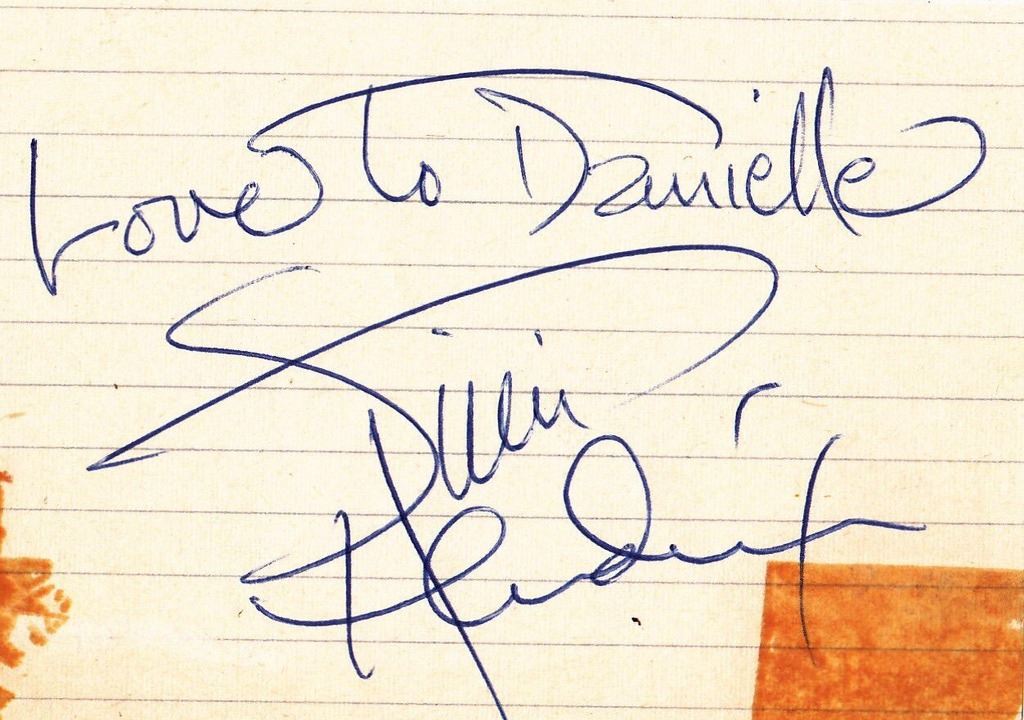 Love to Danielle
Jimi
Hendrix